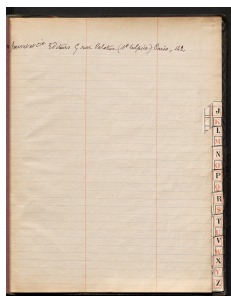 Editeurs 9 rue Palatine (St Sulpice) Paris, 162
J
K
L
M
N
O
P
Q
R
S
T
U
V
W
X
Y
Z